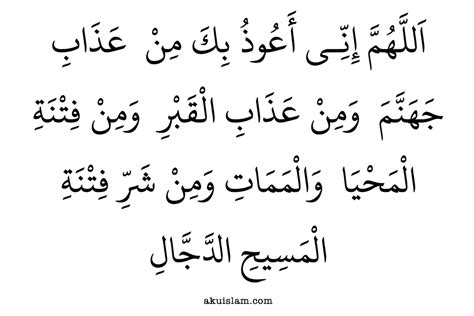 اَللَّهُمَّ إِنِّـى أَعُوذُ بِكَ مِنْ عَذَابِ
جَهَنَّمَ وَمِنْ عَذَابِ الْقَبْرِ وَمِنْ فِتْنَةِ
الْمَحْيَا وَالْمَمَاتِ وَمِنْ شَرِّ فِتْنَةِ
الْمَسِيحِ الدَّجَّالِ
akuislam.com